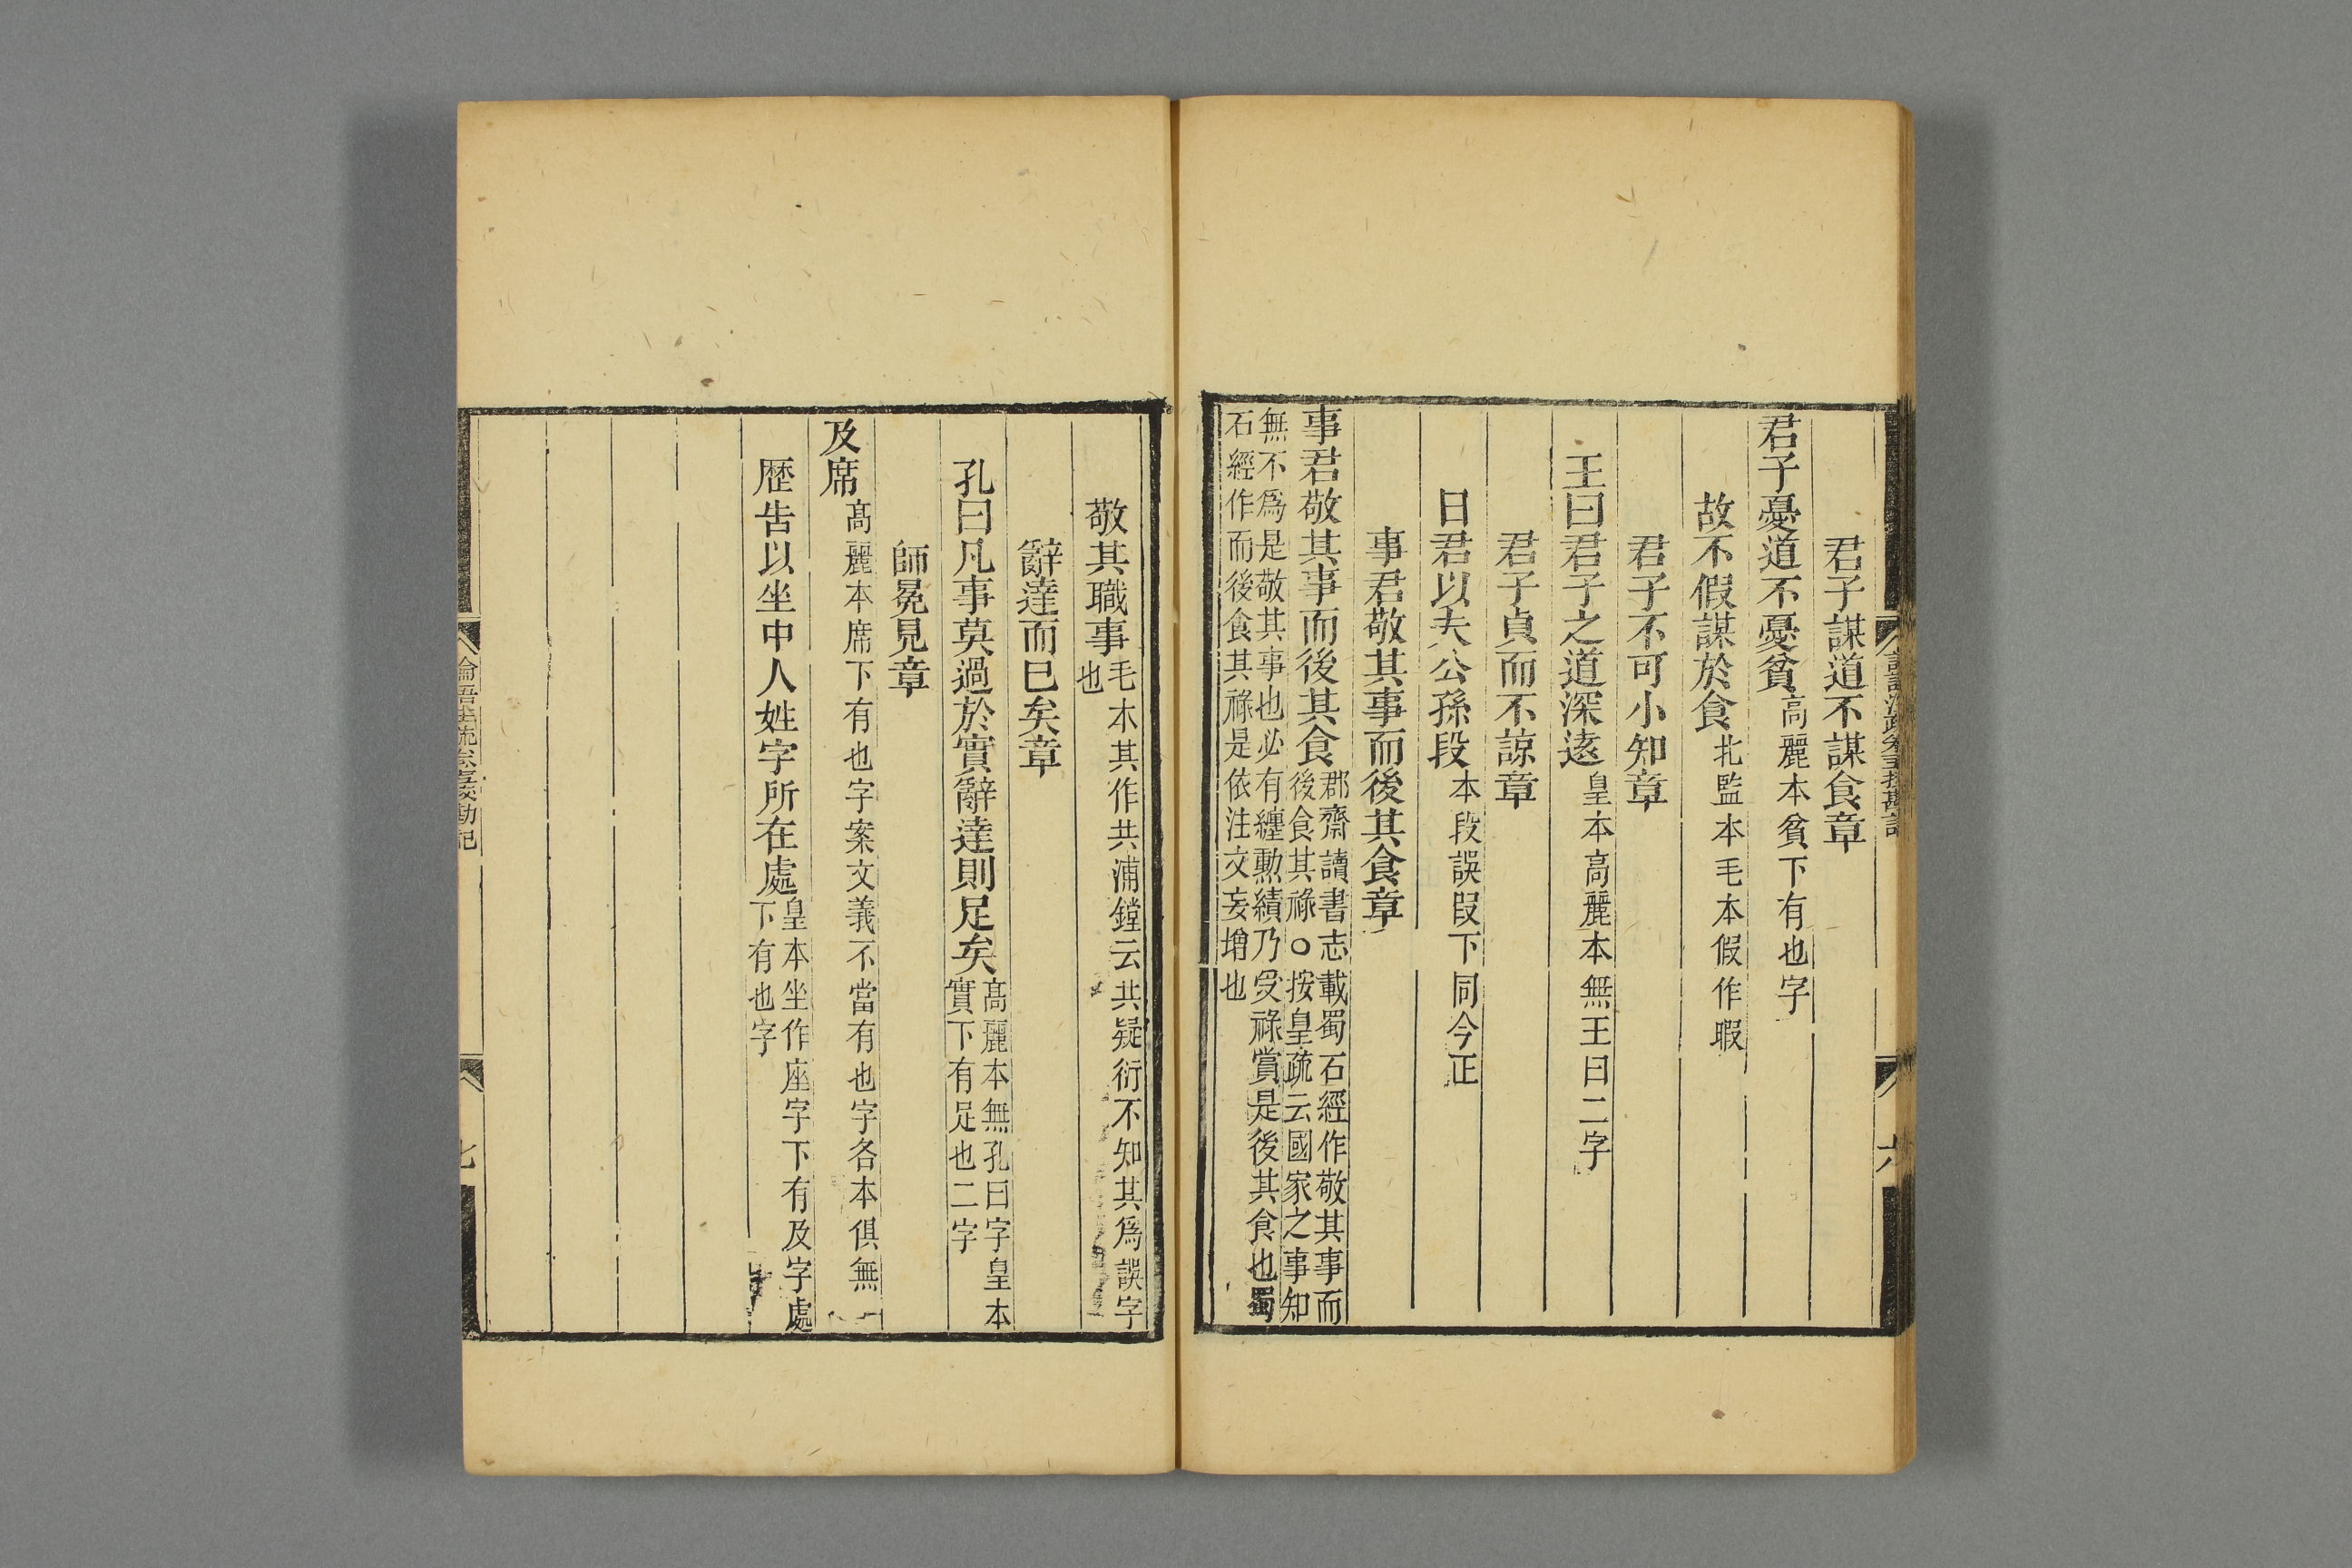 君子謀道不謀食章
君子憂道不憂貧高麗本貧下有也字
故不假謀於食北監本毛本假作暇
君子不可小知章
王曰君子之道深遠皇本高麗本無王曰二字
君子貞而不諒章
日君以夫公孫段本段誤叚下同今正
事君敬其事而後其食章
事君敬其事而後其食郡齋讀書志載蜀石經作敬其事而
後食其祿○按皇疏云國家之事知
無不爲是敬其事也必有纏勲績乃受祿賞是後其食也蜀
石經作而後食其祿是依注文妄增也
敬其職事毛本其作共浦鏜云共疑衍不知其爲誤字
也
辭達而已矣章
孔曰凡事莫過於實辭達則足矣高麗本無孔曰字皇本
實下有足也二字
師冕見章
及席高麗本席下有也字案文義不當有也字各本俱無
歷告以坐中人姓字所在處皇本坐作座字下有及字處
下有也字